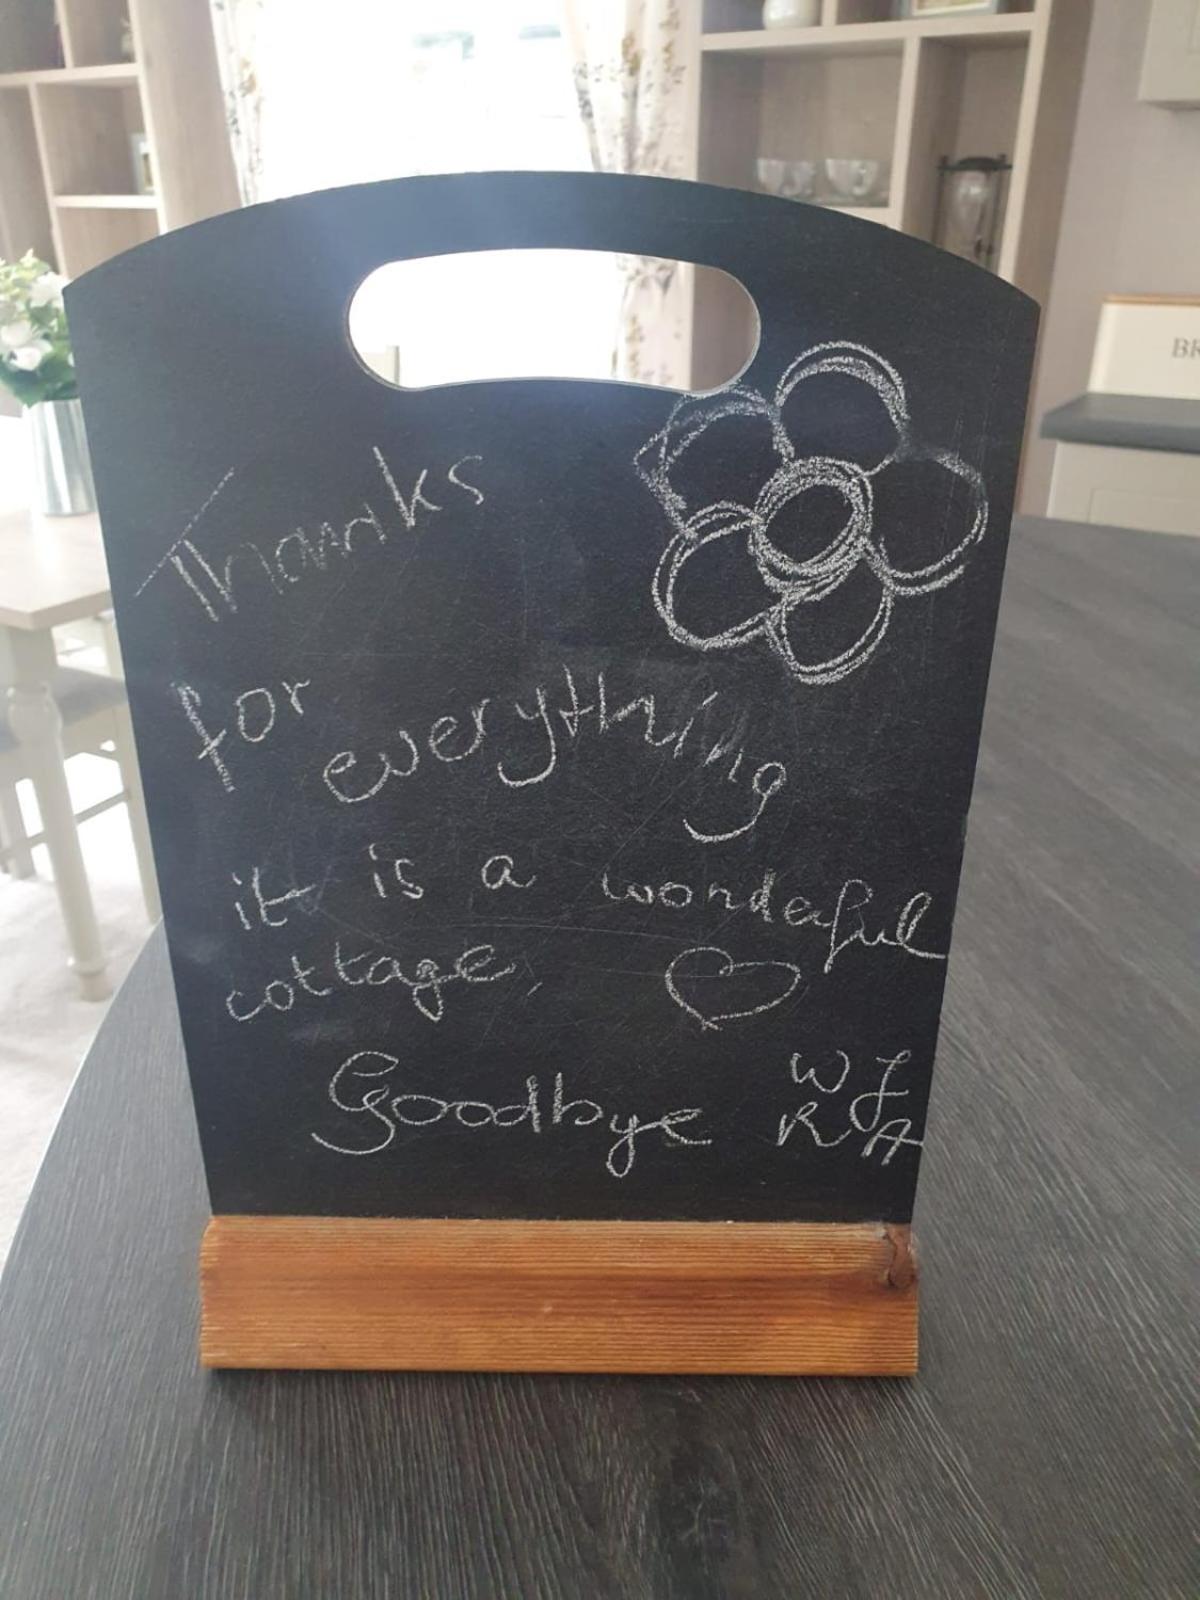 Thanks
for everything
it is a wonderful
cottage,
Goodbye W J
R A
BR